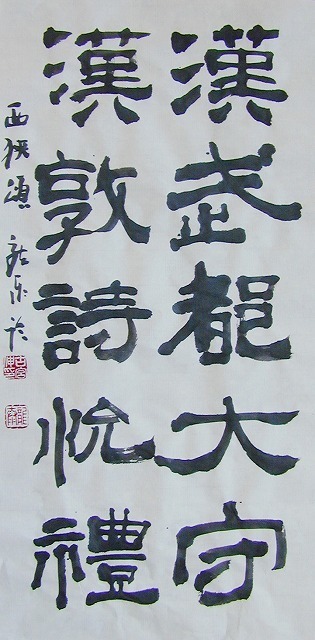 漢武都大守
漢敦詩悦禮
西狹頌